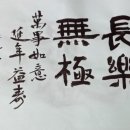 長樂
無極
萬事如意
延年益壽